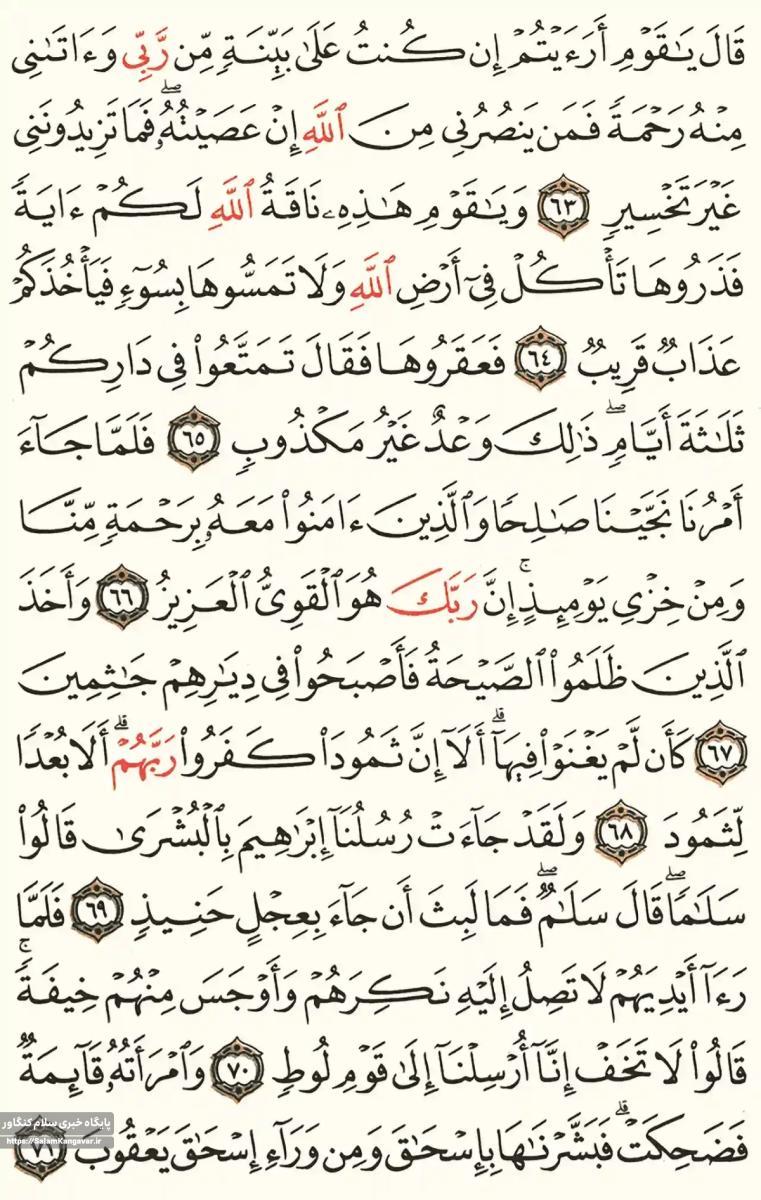 قَالَ يَـٰقَوْمِ أَرَءَيْتُمْ إِن كُنتُ عَلَىٰ بَيِّنَةٍ مِّن رَّبِّى وَءَاتَىٰنِى
مِنْهُ رَحْمَةً فَمَن يَنصُرُنِى مِنَ ٱللَّهِ إِنْ عَصَيْتُهُۥ ۖ فَمَا تَزِيدُونَنِى
غَيْرَ تَخْسِيرٍ ٦٣ وَيَـٰقَوْمِ هَـٰذِهِۦ نَاقَةُ ٱللَّهِ لَكُمْ ءَايَةً
فَذَرُوهَا تَأْكُلْ فِىٓ أَرْضِ ٱللَّهِ وَلَا تَمَسُّوهَا بِسُوٓءٍ فَيَأْخُذَكُمْ
عَذَابٌ قَرِيبٌ ٦٤ فَعَقَرُوهَا فَقَالَ تَمَتَّعُوا۟ فِى دَارِكُمْ
ثَلَـٰثَةَ أَيَّامٍ ۖ ذَٰلِكَ وَعْدٌ غَيْرُ مَكْذُوبٍ ٦٥ فَلَمَّا جَآءَ
أَمْرُنَا نَجَّيْنَا صَـٰلِحًا وَٱلَّذِينَ ءَامَنُوا۟ مَعَهُۥ بِرَحْمَةٍ مِّنَّا
وَمِنْ خِزْىِ يَوْمِئِذٍ ۗ إِنَّ رَبَّكَ هُوَ ٱلْقَوِىُّ ٱلْعَزِيزُ ٦٦ وَأَخَذَ
ٱلَّذِينَ ظَلَمُوا۟ ٱلصَّيْحَةُ فَأَصْبَحُوا۟ فِى دِيَـٰرِهِمْ جَـٰثِمِينَ
٦٧ كَأَن لَّمْ يَغْنَوْا۟ فِيهَآ ۗ أَلَآ إِنَّ ثَمُودَا۟ كَفَرُوا۟ رَبَّهُمْ ۗ أَلَا بُعْدًا
لِّثَمُودَ ٦٨ وَلَقَدْ جَآءَتْ رُسُلُنَآ إِبْرَٰهِيمَ بِٱلْبُشْرَىٰ قَالُوا۟
سَلَـٰمًا ۖ قَالَ سَلَـٰمٌ ۖ فَمَا لَبِثَ أَن جَآءَ بِعِجْلٍ حَنِيذٍ ٦٩ فَلَمَّا
رَءَآ أَيْدِيَهُمْ لَا تَصِلُ إِلَيْهِ نَكِرَهُمْ وَأَوْجَسَ مِنْهُمْ خِيفَةً ۚ
قَالُوا۟ لَا تَخَفْ إِنَّآ أُرْسِلْنَآ إِلَىٰ قَوْمِ لُوطٍ ٧٠ وَٱمْرَأَتُهُۥ قَآئِمَةٌ
فَضَحِكَتْ ۗ فَبَشَّرْنَـٰهَا بِإِسْحَـٰقَ وَمِن وَرَآءِ إِسْحَـٰقَ يَعْقُوبَ ٧١
پایگاه خبری سلام کنگاور
https://SalamKangavar.ir